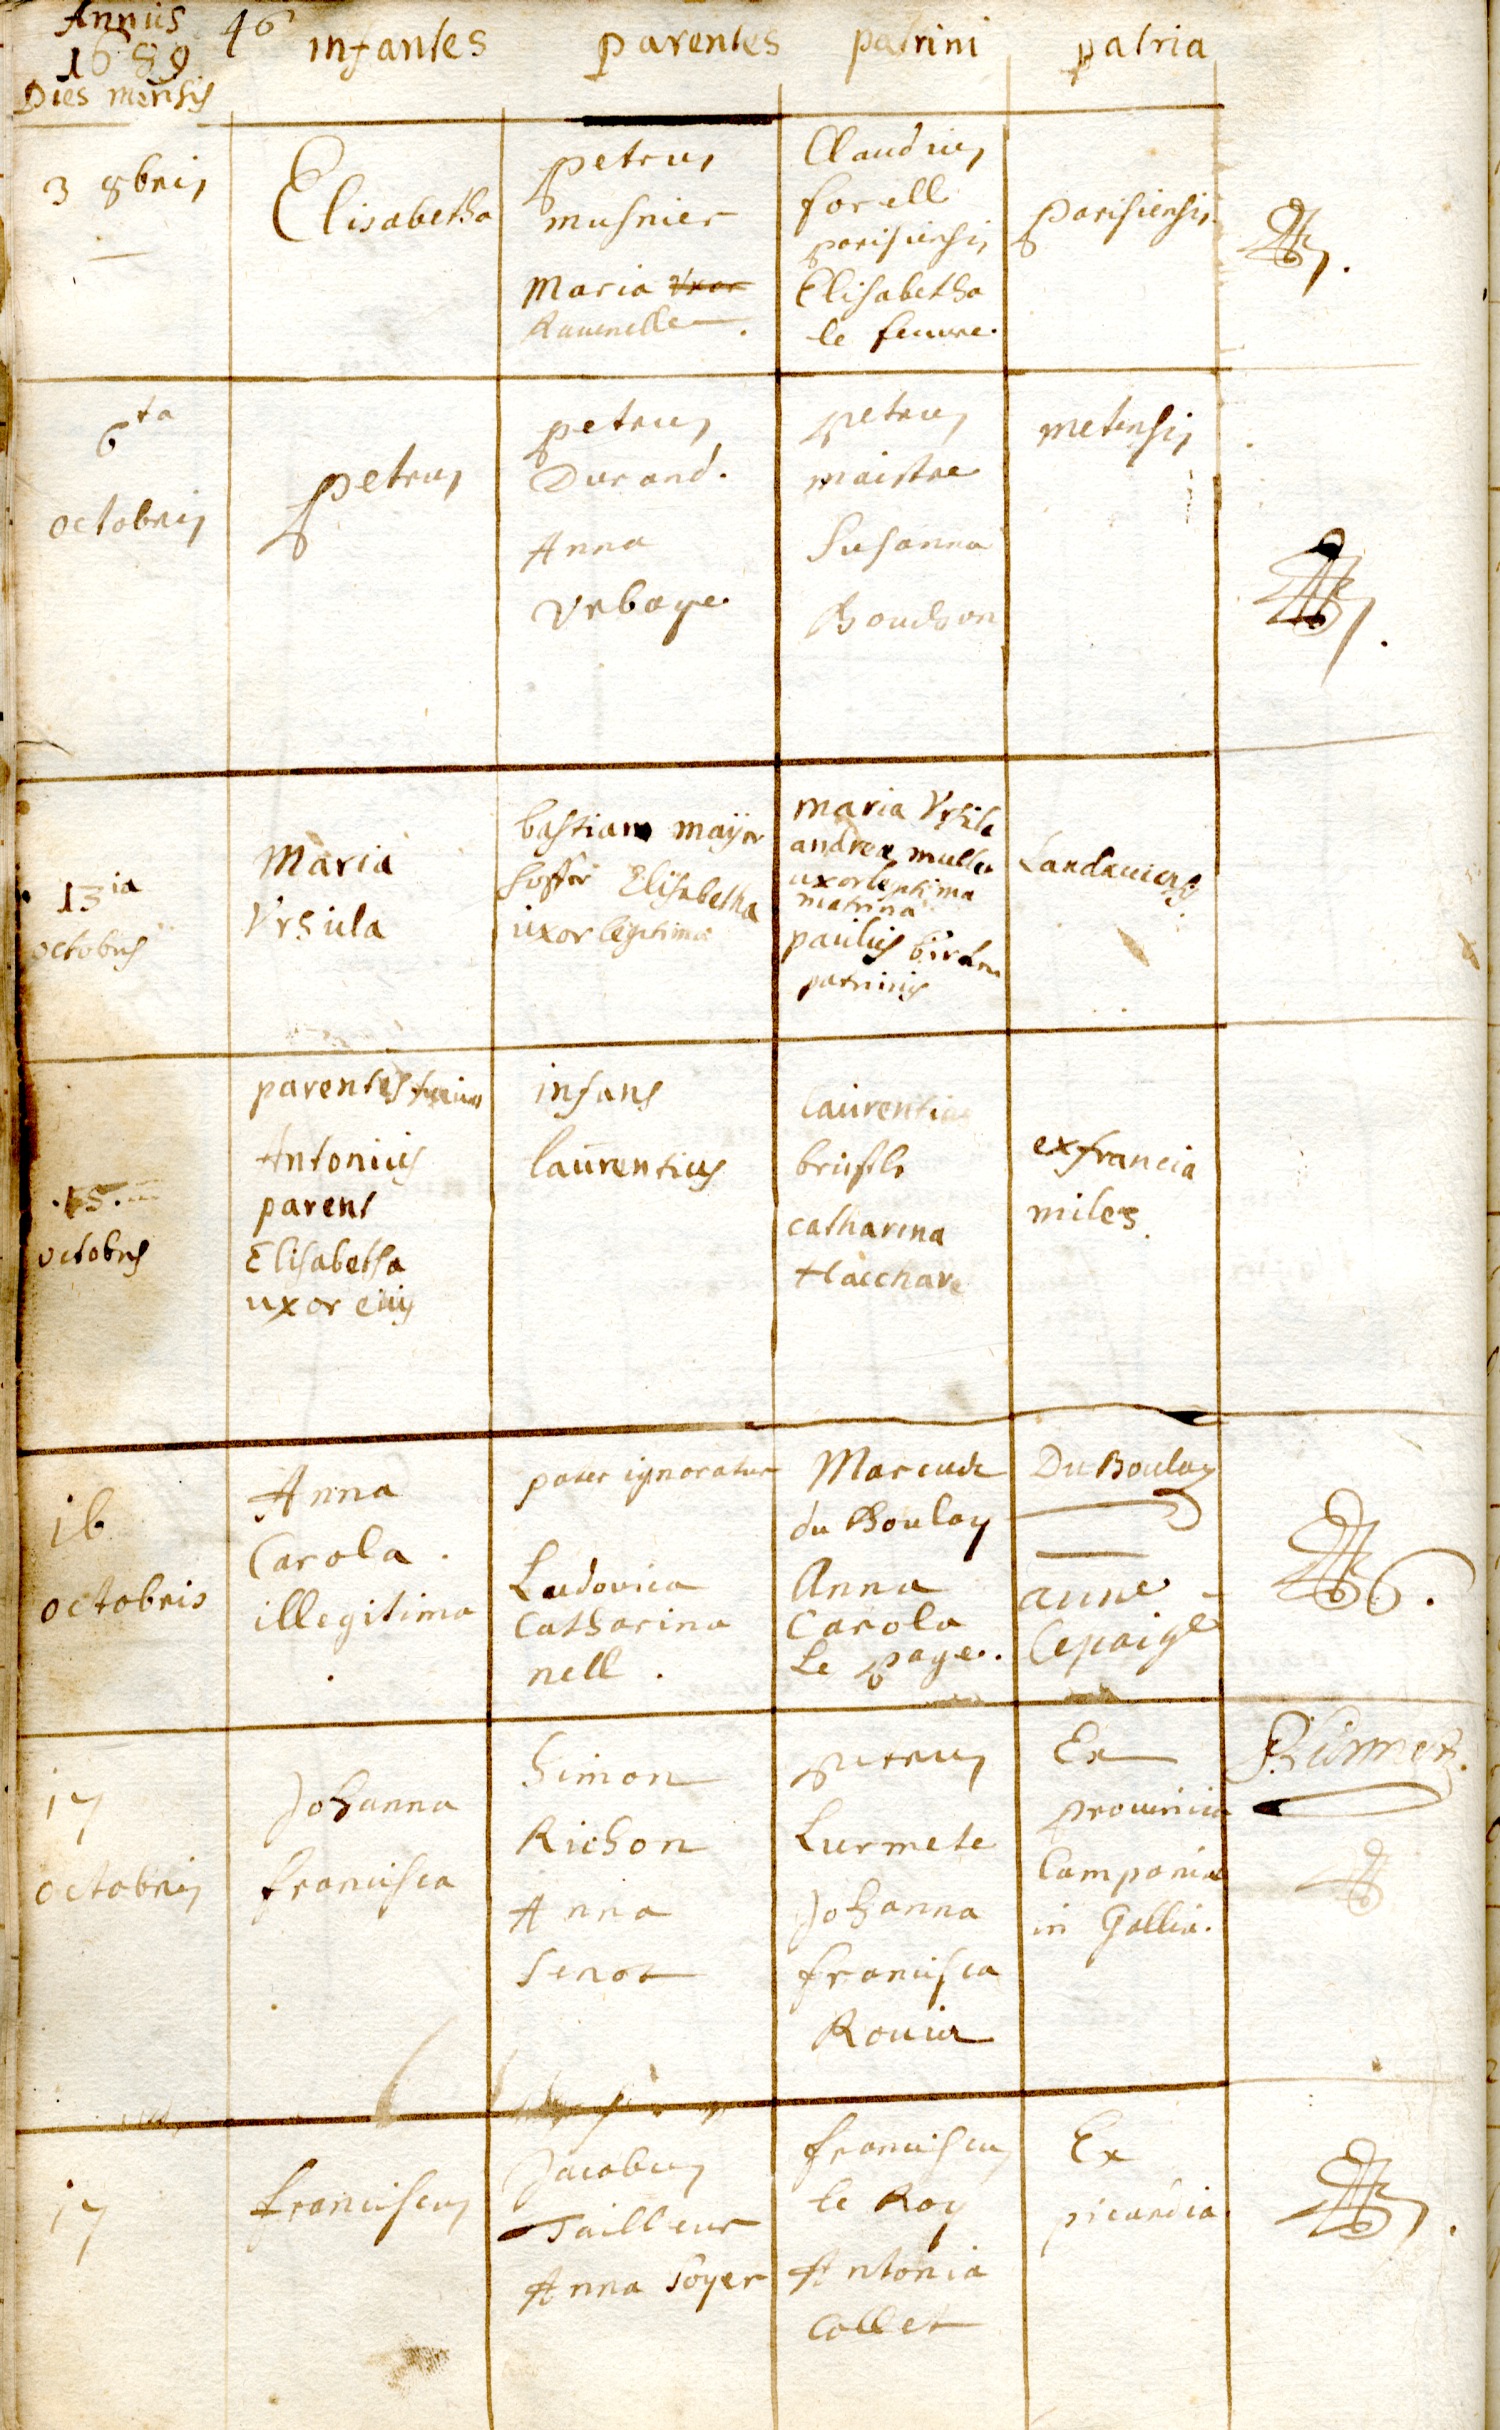 Annus 46
1689
Dies mensis
infantes parentes patrini patria
3 8bris
Elisabetha
petrus
musnier
Maria uxor
Rauenelle.
Claudius
forell
parisiensis
Elisabetha
le feuure.
parisiensis.
6ta
octobris
petrus
petrus
Durand.
Anna
Vrbaye.
petrus
maistre
Susanna
Boudson
metensis
13ia
octobris
Maria
Vrsula
bastian maÿer
Elisabetha
uxor legitima
maria Vrsula
andrea muller
uxor legitima
matrina
paulus
patrinus
Landauiens
15
octobris
parentes
Antonius
parent
Elisabetha
uxor eius
infans
laurentius
laurentius
catharina
ex francia
miles.
16
octobris
Anna
Carola.
illegitima
pater ignoratur
Ludovica
Catharina
nell.
du Boulay
Anna
Carola
Le page.
Du Boulay
anne
Lepaige
17
octobris
Johanna
francisca
Simon
Richon
Anna
Senot
petrus
Lurmete
Johanna
francisca
Rouier
Ex
prouincia
Campania
in Gallia.
17
franciscus
Jacobus
Tailleur
Anna Soyer
franciscus
le Roy
Antonia
Collet
Ex
picardia.